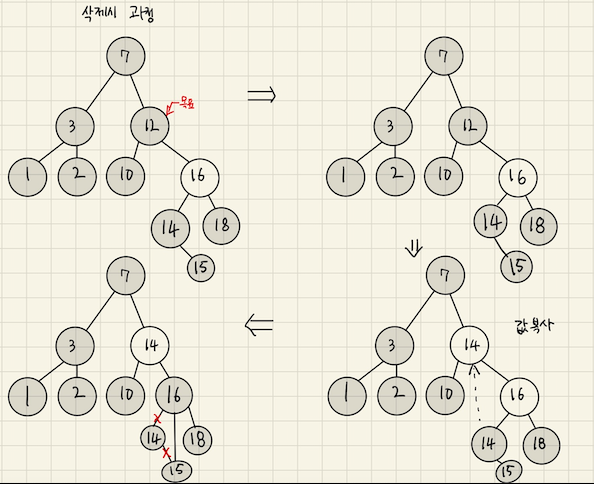 삭제시 과정
7
3
12
목표
1
2
10
16
14
18
15
7
3
12
1
2
10
16
14
18
15
7
3
14
값복사
1
2
10
16
14
18
15
7
3
14
1
2
10
16
14
18
15